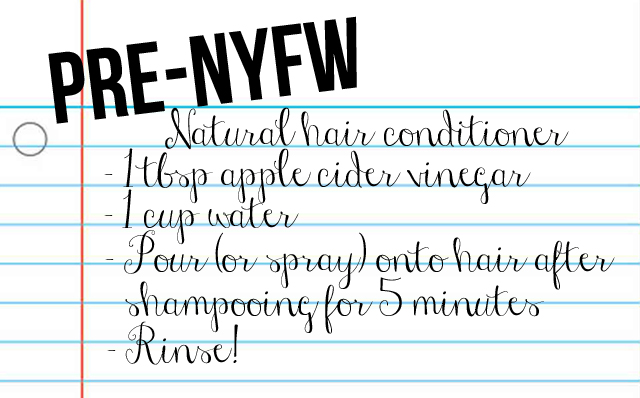 PRE-NYFW
Natural hair conditioner
- 1 tbsp apple cider vinegar
- 1 cup water
- Pour (or spray) onto hair after
shampooing for 5 minutes
- Rinse!